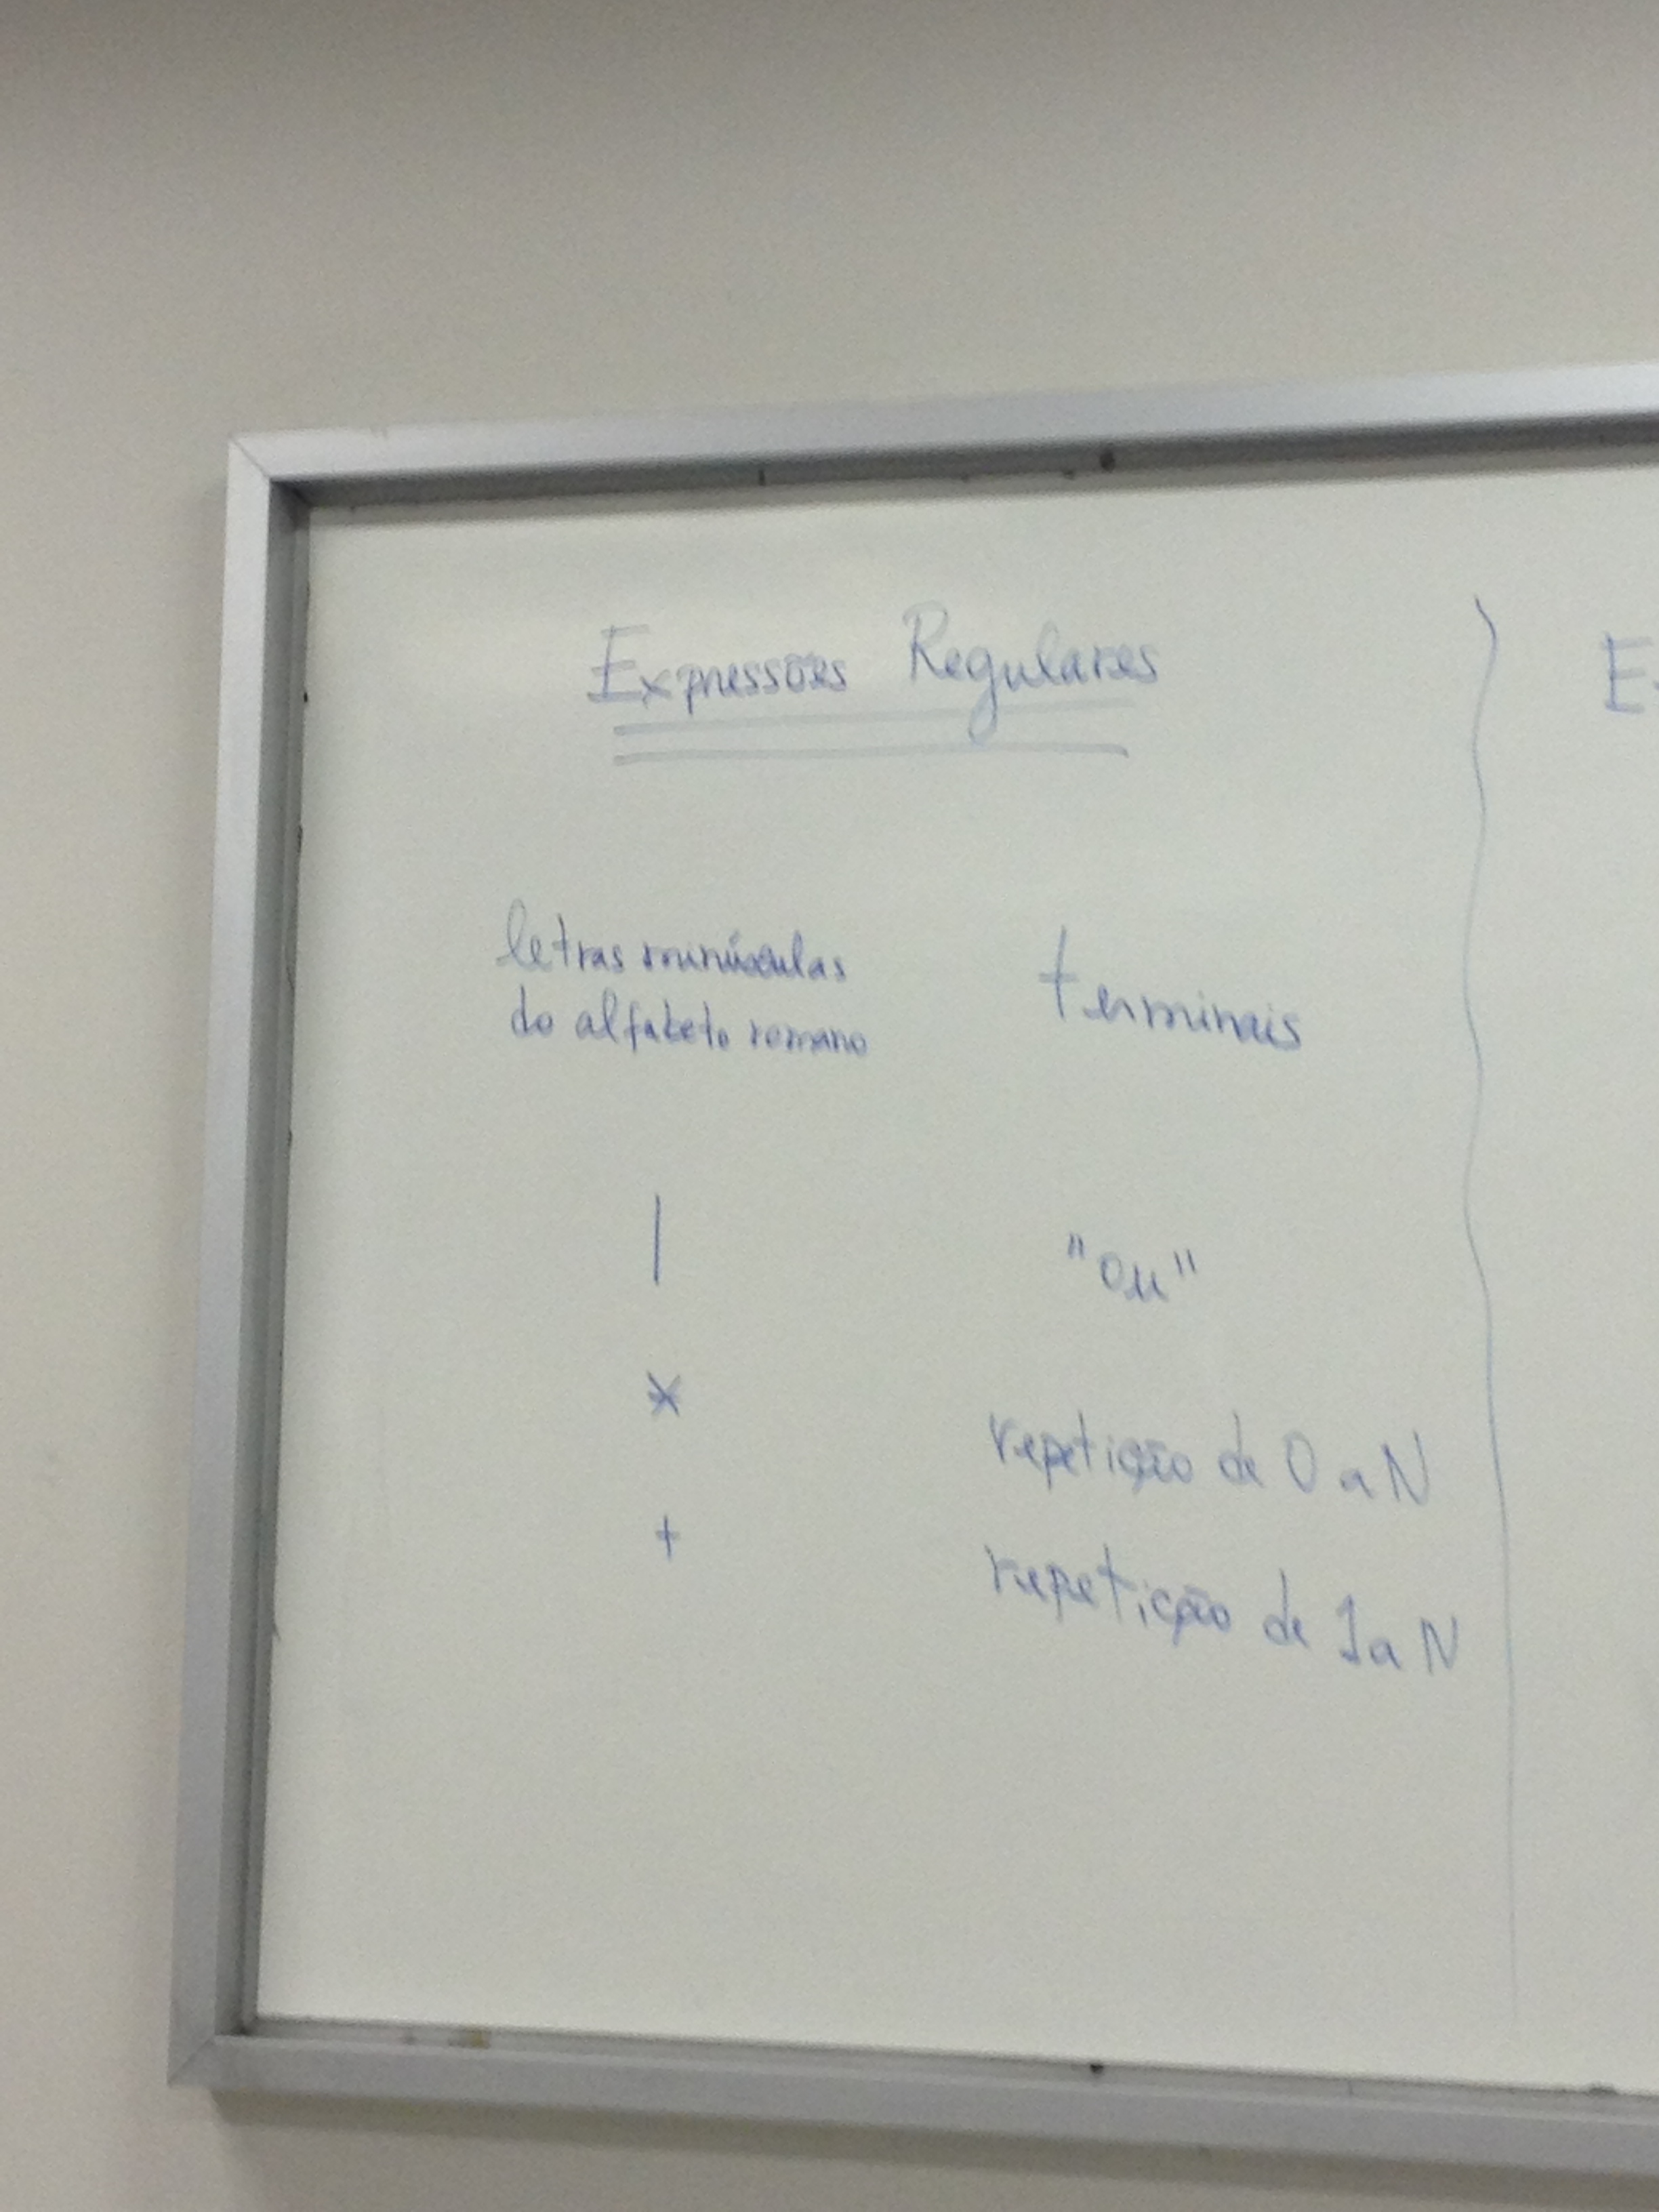 Expressões Regulares
letras minúsculas
do alfabeto romano
terminais
| "ou"
* repetição de 0 a N
+ repetição de 1 a N